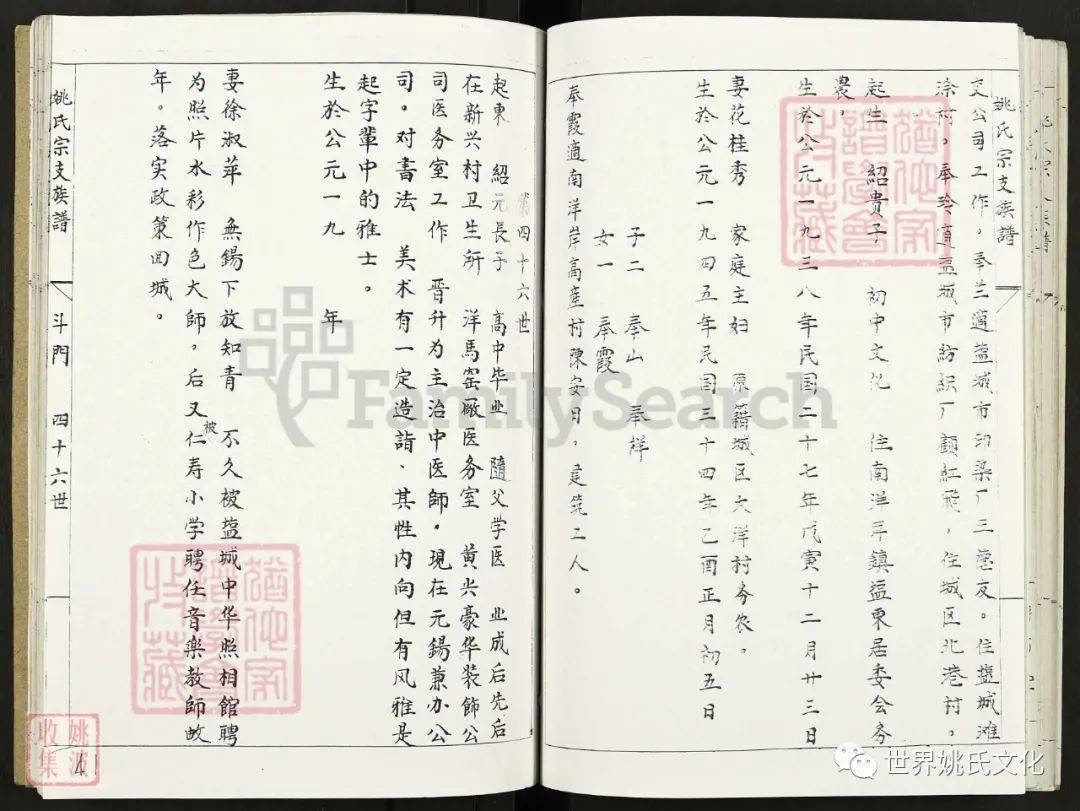 姚氏宗支族譜
交公司工作。奉兰適盐城市印染厂三毫友。住盐城滩
涂村。奉玲適盐城市紡紡厂顧紅飛，住城区北港村。
起生 紹貴子 初中文化 住南洋岸鎮盐東居委会务
農。
生於公元一九三八年民国二十七年戊寅十二月廿三日
妻花桂秀 家庭主妇 原籍城区大洋村务农。
生於公元一九四五年民国三十四年乙酉正月初五日
子二 奉山 奉祥
女一 奉霞
奉霞適南洋岸高產村陳安日，建筑工人。
第四十六世
起東 紹元長子 高中毕业 隨父学医 业成后先后
在新兴村卫生所 洋馬窑廠医务室 黄尖豪华装飾公
司医务室工作 晋升为主治中医師。現在元鍚兼办公
司。对書法 美术有一定造詣、其性内向但有风雅是
起字輩中的雅士。
生於公元一九 年
妻徐淑苹 無鍚下放知青 不久被盐城中华照相館聘
为照片水彩作色大師。后又被仁寿小学聘任音樂教師數
年。落实政策回城。
姚氏宗支族譜
斗門
四十六世
猶他家譜學會收藏
猶他家譜學會收藏
FamilySearch
姚波收集
41
世界姚氏文化